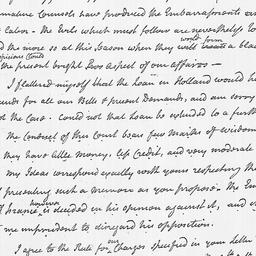 mature Councils have produced the Embarassments un
Labor - The Evils which must follow are nevertheless to
works from
d the more so at this Season when they will a bla
spicious Clouds
the present bright Aspect of our affairs -
I flattered myself that the Loan in Holland would ha
unds for all our Bills & present Demands, and am sorry
t the case. Could not that Loan be extended to a furth
The Conduct of this Court bear few Marks of wisdom
They have little Money, less Credit, and very moderate
My Ideas correspond exactly with your respecting the
presenting such a Memoire as you propose. The Em
however
France is decided in his opinion against it, and it
me imprudent to disregard his opposition.
our
I agree to the Rule for Charges specified in your letter